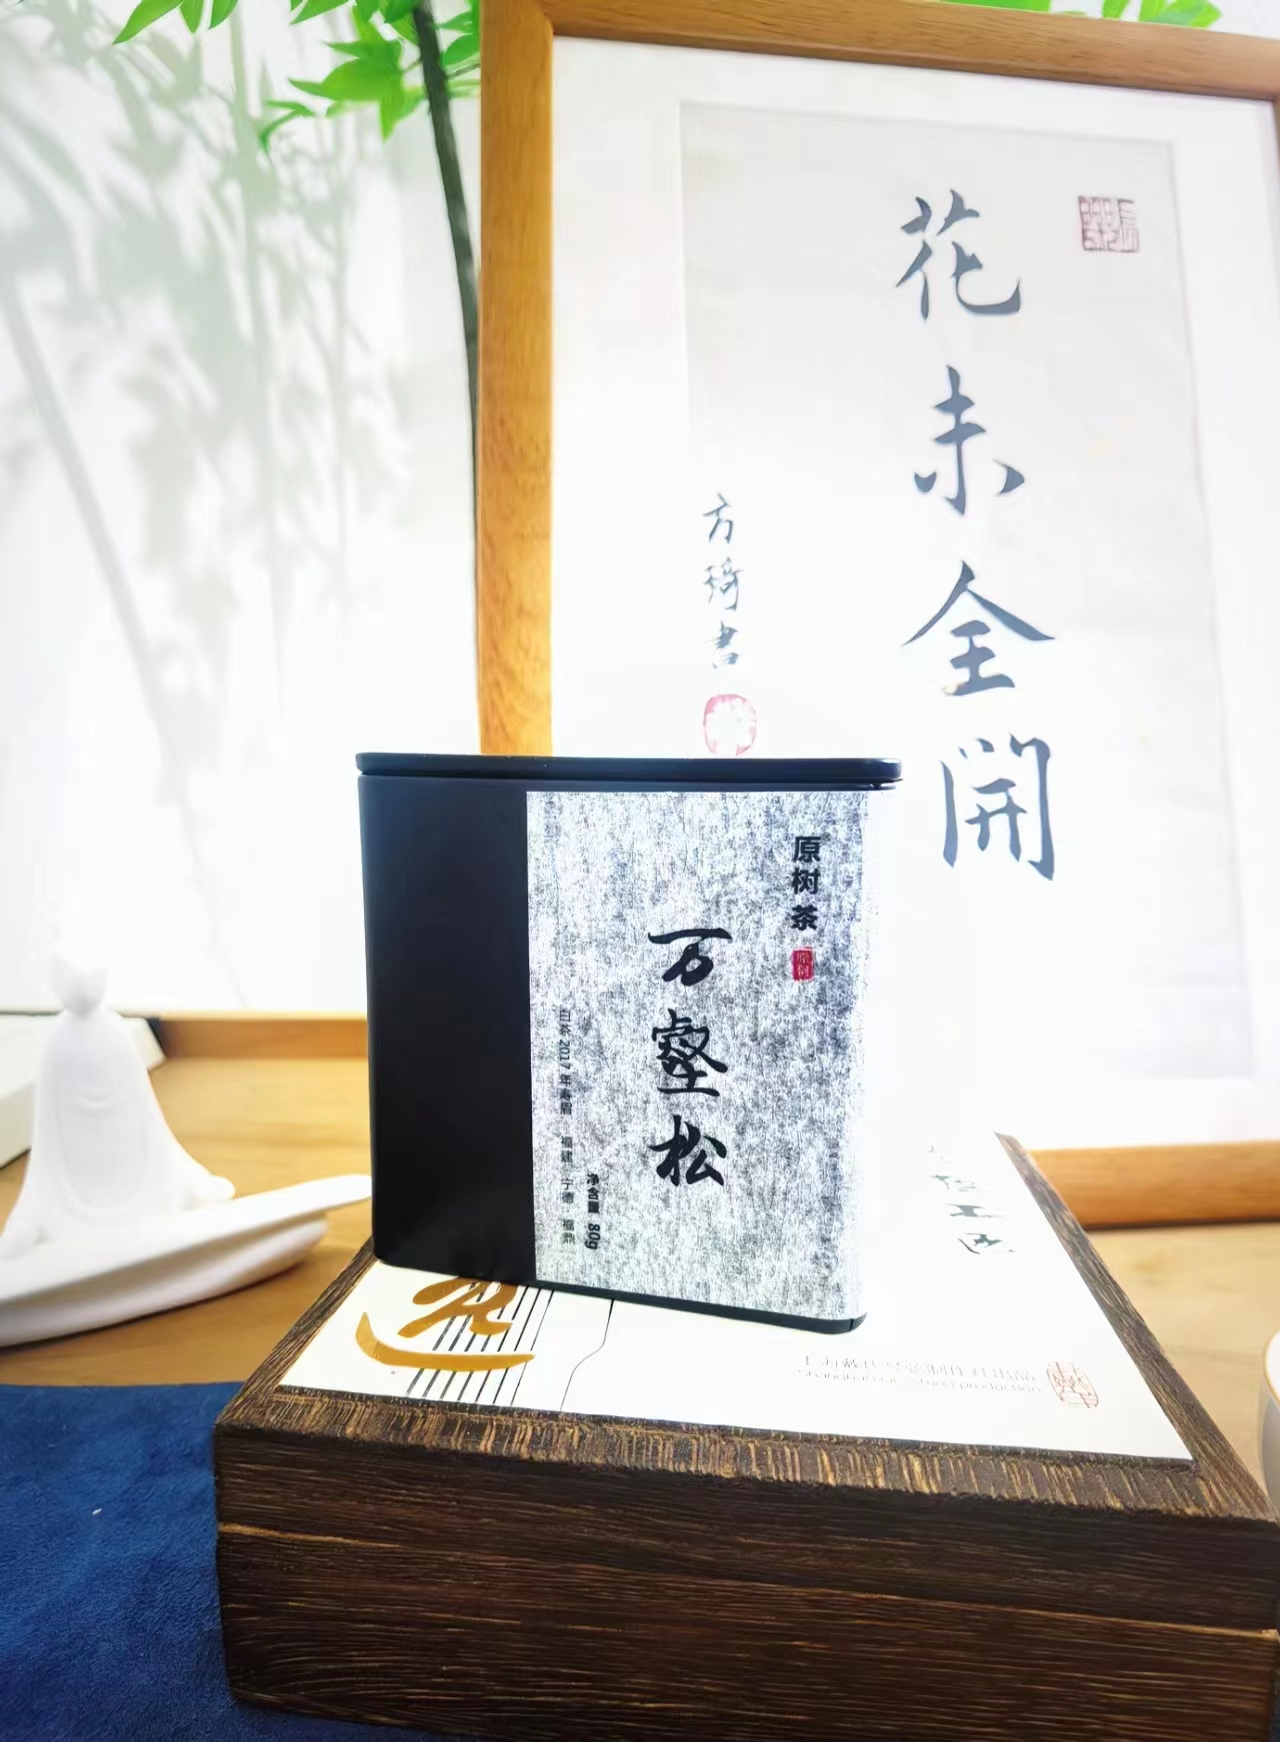 花未全開
方琦書
原树茶
原树
万壑松
白茶 2017年寿眉 福建 宁德 福鼎
净含量 80g